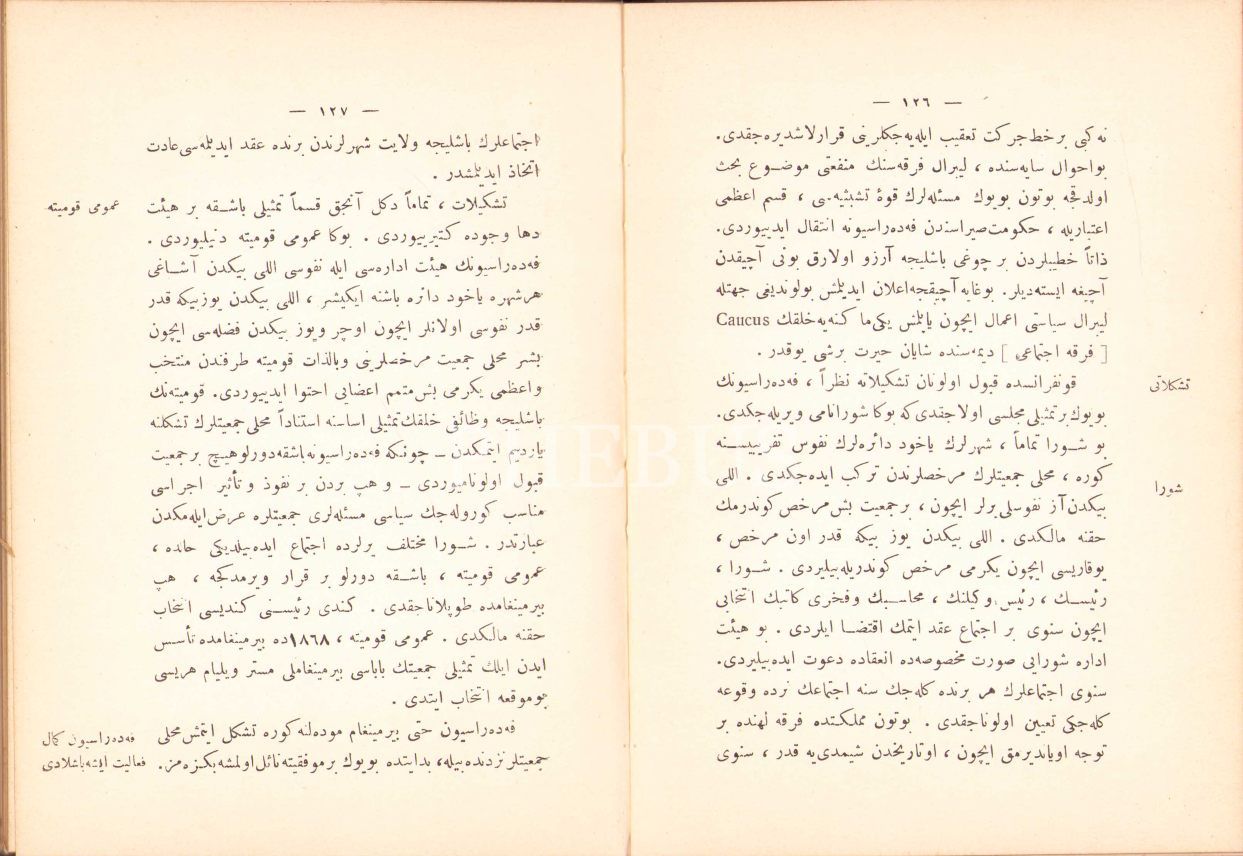 — ١٢٦ —
نه كبی بر خط حركت تعقیب ایله‌یه‌جكلرینی قرارلاشدیره‌جقدی.
بو احوال سایه‌سنده ، لیبرال فرقه‌سنك منفعتی موضـوع بحث
اولدقجه بوتون بویوك مسئله‌لرك قوۀ تشبثیه‌سی ، قسم اعظمی
اعتباریله ، حكومت صیراسندن فه‌ده‌راسیونه انتقال ایدییوردی.
ذاتاً خطیبلردن بر چوغی باشلیجه آرزو اولارق بونی آچیقدن
آچیغه ایسته‌دیلر. بو غایه آچیقجه اعلان ایدیلمش بولوندیغی جهتله
لیبرال سیاستی اعمال ایچون یاپلمش یكی ماكنه‌یه خلقك Caucus
[ فرقه اجتماعی ] دیمه‌سنده شایان حیرت برشی یوقدر .
تشكلاتی
قونفرانسده قبول اولونان تشكیلاته نظراً ، فه‌ده‌راسیونك
بویوك بر تمثیلی مجلسی اولاجقدی كه بوكا شورا نامی ویریله‌جكدی.
بو شـورا تماماً ، شهرلرك یاخود دائره‌لرك نفوس تقریبیـسـنه
شورا
كوره ، محلی جمعیتلرك مرخصلرندن تركب ایده‌جكدی . اللی
بیكدن آز نفوسلی یرلر ایچون ، بر جمعیت بش مرخص كوندرمك
حقنه مالكدی . اللی بیكدن یوز بیكه قدر اون مرخص ،
یوقاریسی ایچون یكرمی مرخص كوندریله‌بیلیردی . شـورا ،
رئیسـك ، رئیس وكیلنك ، محاسبك وفخری كاتبك انتخابی
ایچون سنوی بر اجتماع عقد ایتمك اقتضـا ایلردی . بو هیئت
اداره شورایی صورت مخصوصه‌ده انعقاده دعوت ایده‌بیلیردی.
سنوی اجتماعلرك هر برنده كله‌جك سنه اجتماعك نرده وقوعه
كله‌جكی تعیین اولوناجقدی . بوتون مملكتده فرقه لهنده بر
توجه اویاندیرمق ایچون ، او تاریخدن شیمدی‌یه قدر ، سنوی
— ١٢٧ —
اجتماعلرك باشلیجه ولایت شهرلرندن برنده عقد ایدیلمه‌سی عادت
اتخاذ ایدیلمشدر .
عمومی قومیته
تشكیلات ، تماماً دكل آنجق قسماً تمثیلی باشـقه بر هیئت
دها وجوده كتیرییوردی . بوكا عمومی قومیته دنیلیوردی .
فه‌ده‌راسیونك هیئت اداره‌سی ایله نفوسی اللی بیكدن آشـاغی
هر شهره یاخود دائره باشنه ایكیشر ، اللی بیكدن یوز بیكه قدر
قدر نفوسی اولانلر ایچون اوچر ویوز بیكدن فضله‌سی ایچون
بشر محلی جمعیت مرخصلرینی وبالذات قومیته طرفندن منتخب
واعظمی یكرمی بش متمم اعضایی احتوا ایدییوردی. قومیته‌نك
باشلیجه وظائفی خلقك تمثیلی اساسنه استناداً محلی جمعیتلرك تشكلنه
یاردیم ایتمكدن ـ چونكه فه‌ده‌راسیونه باشقه دورلو هیچ بر جمعیت
قبول اولونامیوردی ـ و هپ بردن بر نفوذ و تأثیر اجراسی
مناسب كوروله‌جك سیاسی مسئله‌لری جمعیتلره عرض ایله‌مكدن
عبارتدر . شـورا مختلف یرلرده اجتماع ایده‌بیلدیكی حالده ،
عمومی قومیته ، باشـقه دورلو بر قرار ویرمدكجه ، هپ
بیرمینغامده طوپلاناجقدی . كندی رئیسـنی كندیسی انتخاب
حقنه مالكدی . عمومی قومیته ، ١٨٦٨ده بیرمینغامده تأسس
ایدن ایلك تمثیلی جمعیتك باباسی بیرمینغاملی مستر ویلیام هریسی
بو موقعه انتخاب ایتدی .
فه‌ده‌راسیون كمال
فعالیت ایشه باشلادی
فه‌ده‌راسیون حتی بیرمینغام موده‌لنه كوره تشكل ایتمش محلی
جمعیتلر نزدنده بیله، بدایتده بویوك بر موفقیته نائل اولمشه بكزه‌مز.